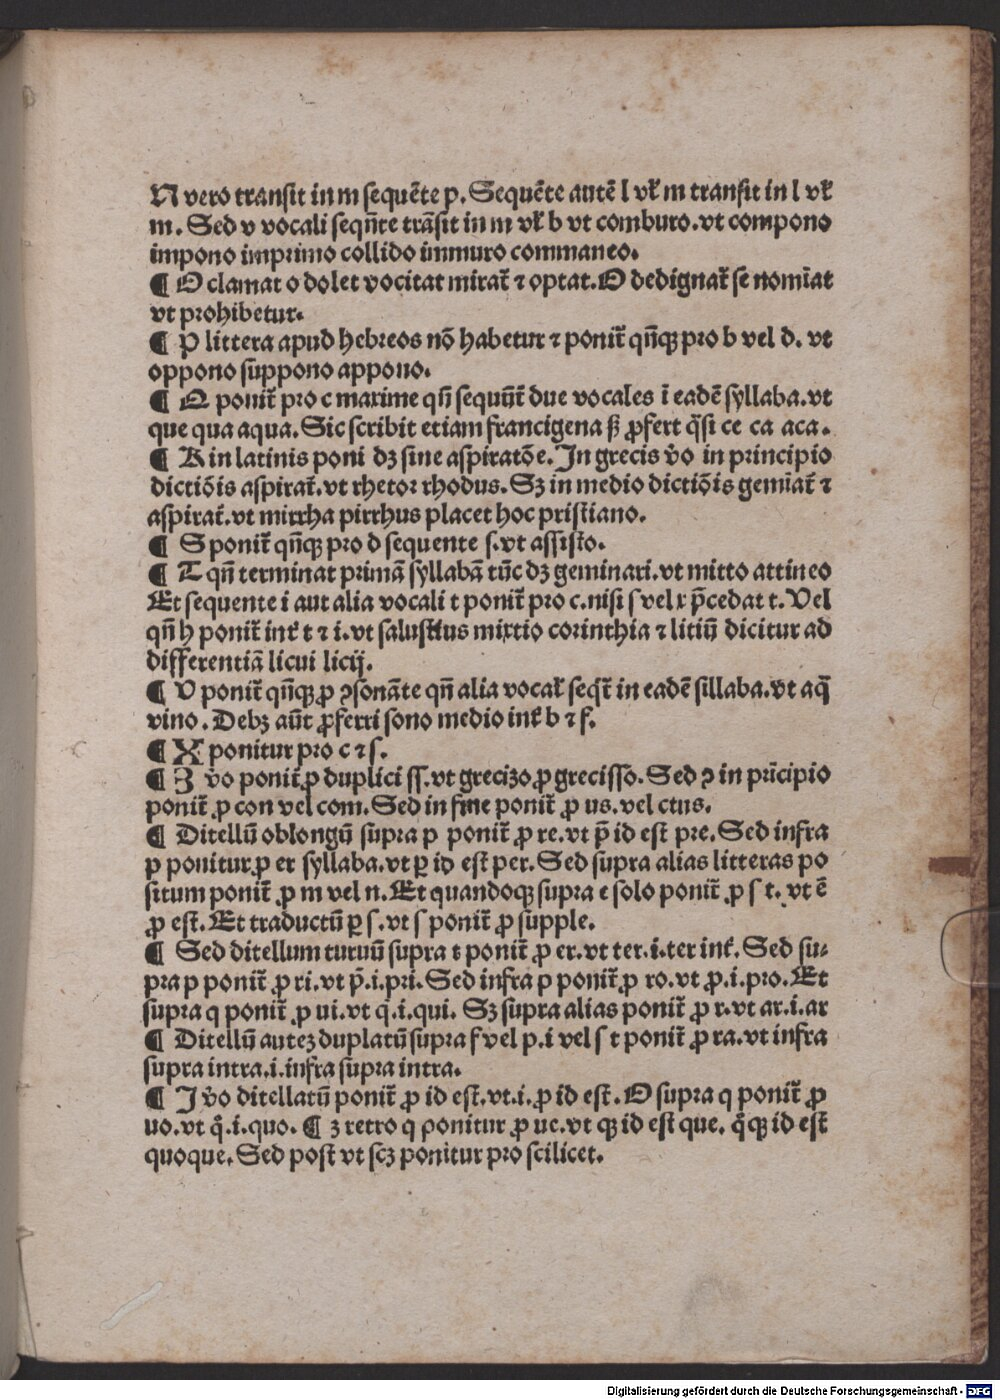 N vero transit in m sequẽte p. Sequẽte autẽ l vl̕ m transit in l vl̕
m. Sed v vocali seqñte trãsit in m vl̕ b vt comburo.vt compono
impono imprimo collido immuro commaneo.
¶ O clamat o dolet vocitat mirat̃ ⁊ optat. O dedignat̃ se nomĩat
vt prohibetur.
¶ P littera apud hebreos nõ habetur ⁊ ponit̃ qñqꝫ pro b vel d. vt
oppono suppono appono.
¶ Q ponit̃ pro c maxime qñ sequũt̃ due vocales ĩ eadẽ syllaba.vt
que qua aqua. Sic scribit etiam francigena sꝫ ꝓfert q̃si ce ca aca.
¶ R in latinis poni dꝫ sine aspiratõe. In grecis v̾o in principio
dictiõis aspirat̃.vt rhetor rhodus. Sꝫ in medio dictiõis gemĩat̃ ⁊
aspirat̃.vt mirrha pirrhus placet hoc pristiano.
¶ S ponit̃ qñqꝫ pro d sequente s.vt assisto.
¶ T qñ terminat primã syllabã tũc dꝫ geminari.vt mitto attineo
Et sequente i aut alia vocali t ponit̃ pro c.nisi s vel x p̃cedat t. Vel
qñ h ponit̃ int̾ t ⁊ i.vt salustius mixtio corinthia ⁊ litiũ dicitur ad
differentiã licui licij.
¶ V ponit̃ qñqꝫ ꝓ ꝯsonãte qñ alia vocal̕ seqt̃ in eadẽ sillaba.vt aq̃
vino. Debꝫ aũt ꝓferri sono medio int̾ b ⁊ f.
¶ X ponitur pro c ⁊ s.
¶ Z v̾o ponit̃ ꝓ duplici ss.vt grecizo ꝓ grecisso. Sed ꝯ in prĩcipio
ponit̃ ꝓ con vel com. Sed in fine ponit̃ ꝓ us.vel ctus.
¶ Ditellũ oblongũ supra p ponit̃ ꝓ re.vt p̃ id est pre. Sed infra
p ponitur ꝓ er syllaba.vt ꝑ id est per. Sed supra alias litteras po
situm ponit̃ ꝓ m vel n. Et quandoqꝫ supra e solo ponit̃ ꝓ s t. vt ẽ
ꝓ est. Et traductũ ꝑ s.vt s ponit̃ ꝓ supple.
¶ Sed ditellum turuũ supra t ponit̃ ꝓ er.vt ter.i.ter int̾. Sed su⸗
pra p ponit̃ ꝓ ri.vt p̃.i.pri. Sed infra p ponit̃ ꝓ ro.vt ꝓ.i.pro. Et
supra q ponit̃ ꝓ ui.vt q̃.i.qui. Sꝫ supra alias ponit̃ ꝓ r.vt ar.i.ar
¶ Ditellũ auteꝫ duplatũ supra f vel p.i vel s t ponit̃ ꝓ ra.vt infra
supra intra.i.infra supra intra.
¶ I v̾o ditellatũ ponit̃ ꝓ id est.vt.i.ꝓ id est. O supra q ponit̃ ꝓ
uo.vt qͦ.i.quo. ¶ ꝫ retro q ponitur ꝓ ue.vt qꝫ id est que. qͦqꝫ id est
quoque. Sed post vt scꝫ ponitur pro scilicet.
Digitalisierung gefördert durch die Deutsche Forschungsgemeinschaft - DFG